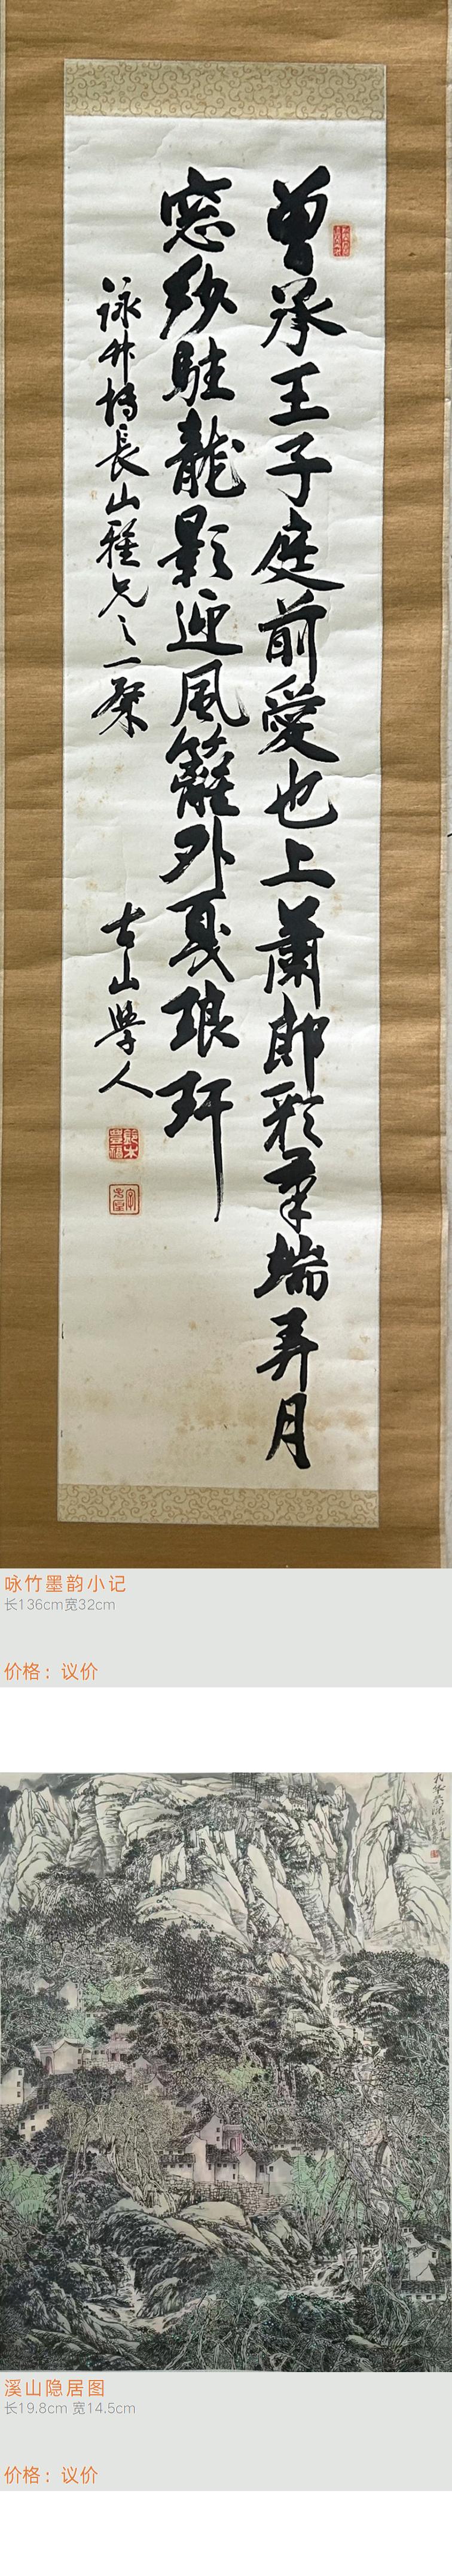 曾承王子庭前愛也上蕭郎彩筆端弄月
窓紗駐龍影迎風籬外戛琅玕
詠竹博長山雅兄之一粲
古山學人
咏竹墨韵小记
长136cm宽32cm
价格：议价
溪山隐居图
长19.8cm 宽14.5cm
价格：议价